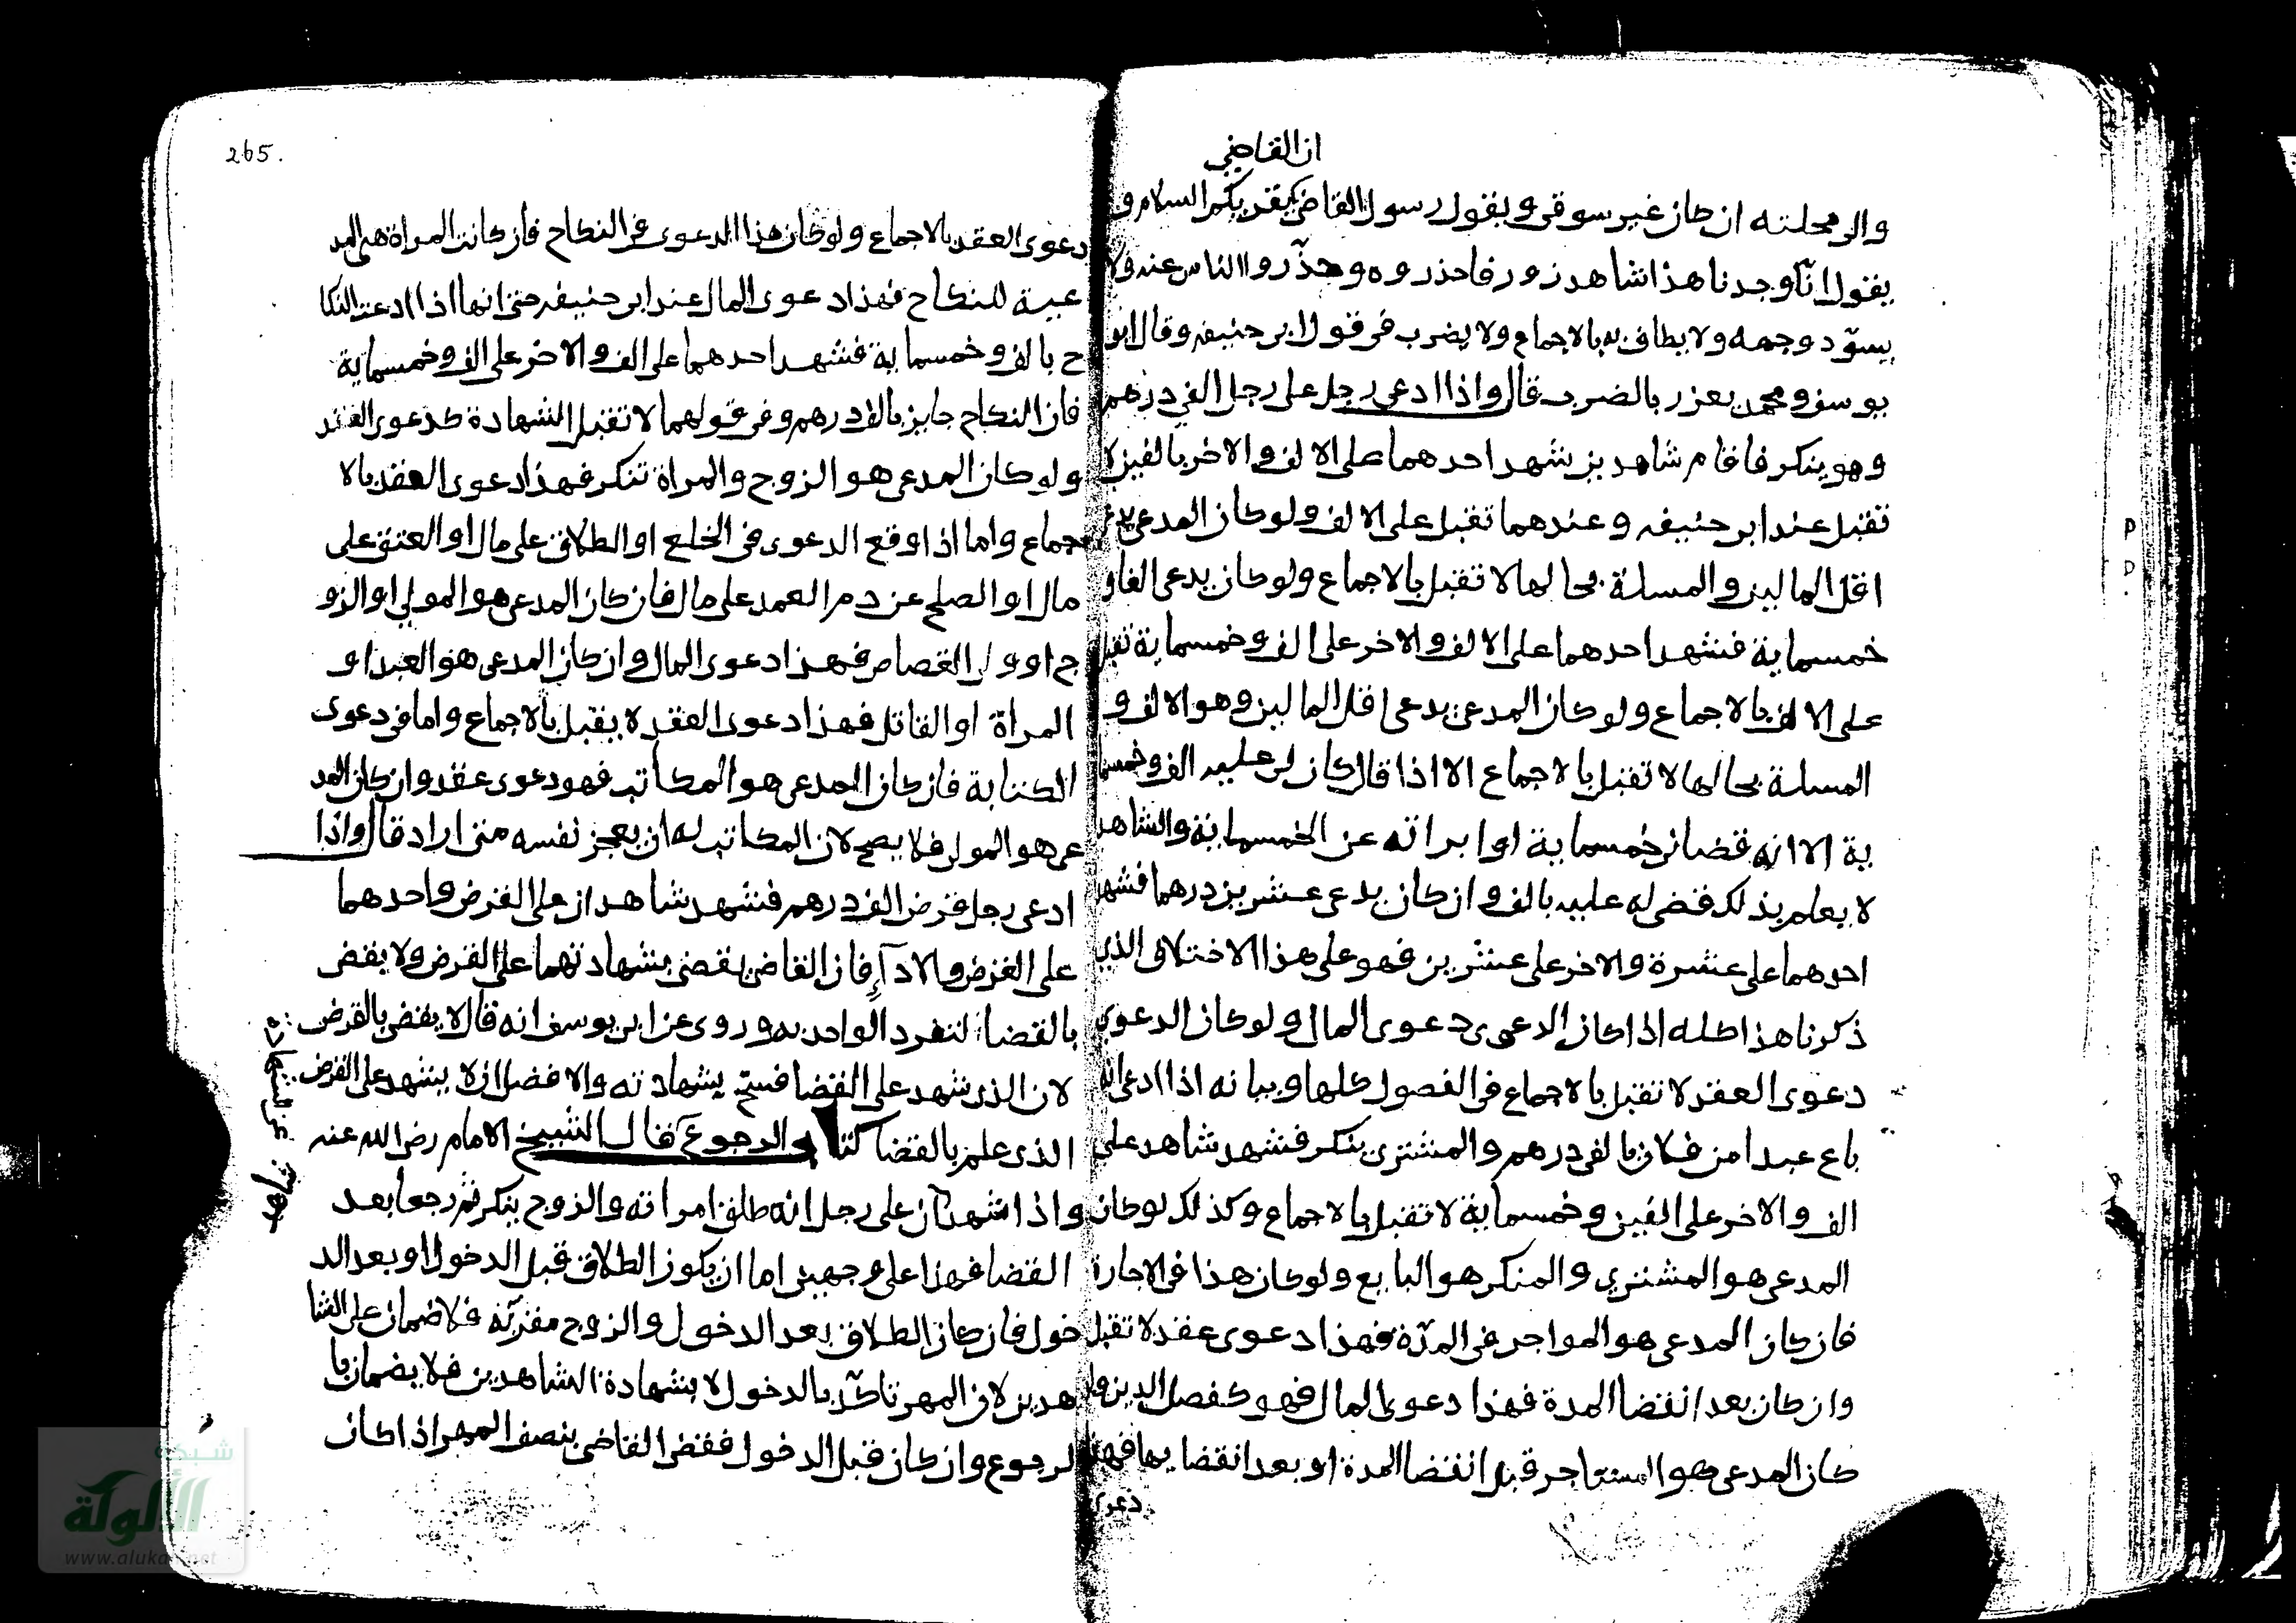 ان القاضي
والى محلته ان كان غير سوقي ويقول رسول القاضي يقريكم السلام و
يقول انّا وجدنا هذا شاهد زور فاحذروه وحذّروا الناس عنه ولا
يسوّد وجهه ولا يطاف به بالاجماع ولا يضرب في قول ابي حنيفه وقال ابو
يوسف ومحمد يعزر بالضرب قال واذا ادعى رجل على رجل الفي درهم
وهو ينكر فاقام شاهدين شهد احدهما على الالف والاخر بالفين لا
تقبل عند ابي حنيفه وعندهما تقبل على الالف ولو كان المدعي يدعي
اقل المالين والمسلة بحالها لا تقبل بالاجماع ولو كان يدعي الفا و
خمسماية فشهد احدهما على الالف والاخر على الف وخمسماية تقبل
على الالف بالاجماع ولو كان المدعي يدعي اقل المالين وهو الالف و
المسلة بحالها لا تقبل بالاجماع الا اذا قال كان لي عليه الف وخمسما
ية الا انه قضاني خمسماية او ابراته عن الخمسماية والشاهد
لا يعلم بذلك قضى له عليه بالف وان كان يدعي عشرين درهما فشهد
احدهما على عشرة والاخر على عشرين فهو على هذا الاختلاف الذي
ذكرنا هذا كله اذا كان الدعوى دعوى المال ولو كان الدعوى
دعوى العقد لا تقبل بالاجماع في الفصول كلها وبيانه اذا ادعى انه
باع عبدا من فلان بالفي درهم والمشتري ينكر فشهد شاهد على
الف والاخر على الفين وخمسماية لا تقبل بالاجماع وكذلك لو كان
المدعي هو المشتري والمنكر هو البايع ولو كان هذا في الاجارة
فان كان المدعي هو المواجر في المدّة فهذا دعوى عقد لا تقبل
وان كان بعد انقضا المدة فهذا دعوى المال فهو كفصل الدين وان
كان المدعي هو المستاجر قبل انقضا المدة او بعد انقضايها فهذا
دعوى
265.
دعوى العقد بالاجماع ولو كان هذا الدعوى في النكاح فان كانت المراة هي المد
عية للنكاح فهذا دعوى المال عند ابي حنيفه حتى انها اذا ادعت النكا
ح بالف وخمسماية فشهد احدهما على الف والاخر على الف وخمسماية
فان النكاح جايز بالف درهم وفي قولهما لا تقبل الشهادة كدعوى العقد
ولو كان المدعي هو الزوج والمراة تنكر فهذا دعوى العقد بالا
جماع واما اذا وقع الدعوى في الخلع او الطلاق على مال او العتق على
مال او الصلح عن دم العمد على مال فان كان المدعي هو المولى او الزو
ج او ولي القصاص فهذا دعوى المال وان كان المدعي هو العبد او
المراة او القاتل فهذا دعوى العقد لا يقبل بالاجماع واما في دعوى
الكتابة فان كان المدعي هو المكاتب فهو دعوى عقد وان كان المد
عي هو المولى فلا يصح لان المكاتب له ان يعجز نفسه متى اراد قال واذا
ادعى رجل قرض الف درهم فشهد شاهدان على القرض واحدهما
على القرض والادآءِ فان القاضي يقضي بشهادتهما على القرض ولا يقضي
بالقضا لتفرد الواحد به وروى عن ابي يوسف انه قال لا يقضى بالقرض
لان الذي شهد على القضا فسخ بشهادته والافضل ان لا يشهد على القرض
الذي علم بالقضا كتاب الرجوع عن الشهادة قال الشيخ الامام رضي الله عنه
واذا شهد شاهدان على رجل انه طلق امراته والزوج ينكر ثم رجعا بعد
القضا فهذا على وجهين اما ان يكون الطلاق قبل الدخول او بعد الد
خول فان كان الطلاق بعد الدخول والزوج مقرّ به فلا ضمان على الشا
هدين لان المهر تاكّد بالدخول لا بشهادة الشاهدين فلا يضمان با
لرجوع وان كان قبل الدخول فقضى القاضي بنصف المهر اذا كان
شبكة
الألوكة
www.alukah.net